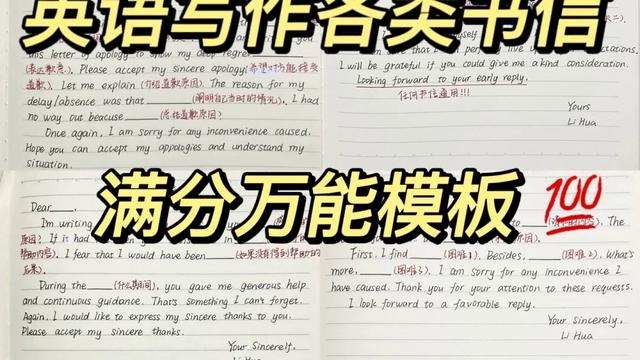 英语写作各类书信
this letter of apology to show my deep regret
(表达歉意). Please accept my sincere apology(希望对方能接受
道歉). Let me explain (介绍道歉原因). The reason for my
delay/absence was that ____ (阐明自己当时的情况), I had
no way out beacuse ____ (总结道歉原因).
Once again, I am sorry for any inconvenience caused.
Hope you can accept my appologies and understand my
situation.
I will be grateful if you could give me a kind consideration.
Looking forward to your early reply.
任何书信通用!!!
Yours
Li Hua
满分万能模板 💯
Dear____,
I'm writing
原因? If it had
I fear that I would have been ____ (如果没有得到帮助的
后果).
During the ____ (什么期间), you gave me generous help
and continuous guidance. That's something I can't forget.
Again, I would like to express my sincere thanks to you.
Please accept my sincere thanks.
Your Sincerely,
Li Hua
First, I find ____ (困难1). Besides, ____ (困难2). What's
more, ____ (困难3). I am sorry for any inconvenience I
have caused. Thank you for your attention to these requests.
I look forward to a favorable reply.
Your Sincerely,
Li Hua